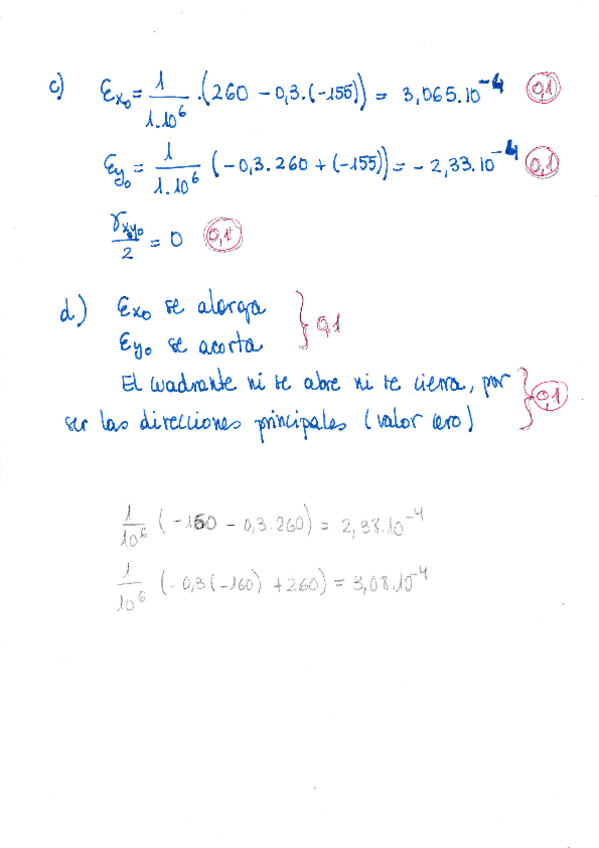 c) εx₀ = 1/1.10⁶ .(260 - 0,3.(-155)) = 3,065.10⁻⁴ 0,1
εy₀ = 1/1.10⁶ (-0,3.260 + (-155)) = -2,33.10⁻⁴ 0,1
γxy₀/2 = 0 0,1
d) εx₀ se alarga
εy₀ se acorta } 0,1
El cuadrante ni se abre ni se cierra, por
ser las direcciones principales (valor cero) } 0,1
1/10⁶ (-160 - 0,3.260) = 2,38.10⁻⁴
1/10⁶ (-0,3(-160) + 260) = 3,08.10⁻⁴